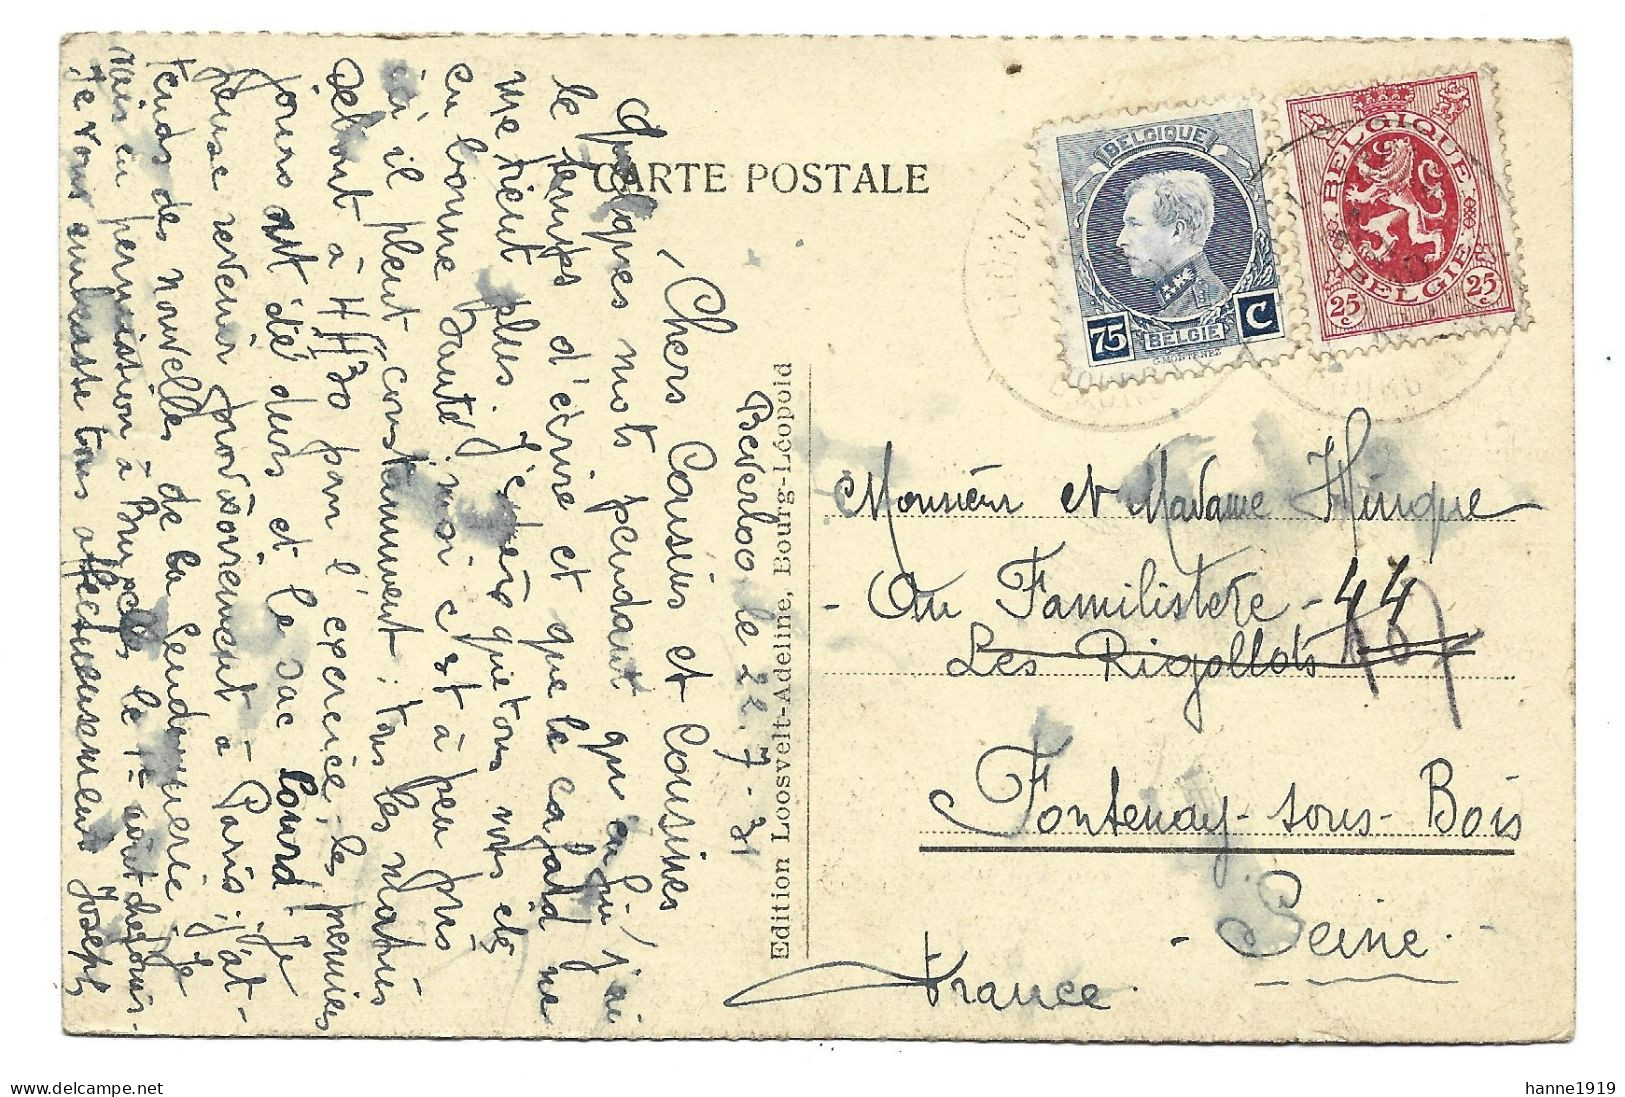 CARTE POSTALE
BELGIQUE
75 C
BELGIE
G. MONTENEZ
BELGIQUE
BELGIE
25 c 25 c
Edition Loosvelt-Adeline, Bourg-Léopold
Beverloo le 22.7-31
Chers Cousins et Cousines
Quelques mots pendant qu'enfin j'ai
le temps d'écrire et que le cafard ne
me tient plus. J'espère que tous vous êtes
en bonne santé, moi c'est à peu près
ici il pleut constamment; tous les matins
debout à 4H30 pour l'exercice, les premiers
jours ont été durs et le sac lourd. Je
pense revenir provisoirement à Paris; j'at-
tends des nouvelles de la gendarmerie. Je
vais en permission à Bruxelles le 1er août
Je vous embrasse tous affectueusement Joseph
Monsieur et Madame Hinque
Au Familistère - 44
Les Rigollots 107
Fontenay-sous-Bois
- Seine -
France
hanne1919